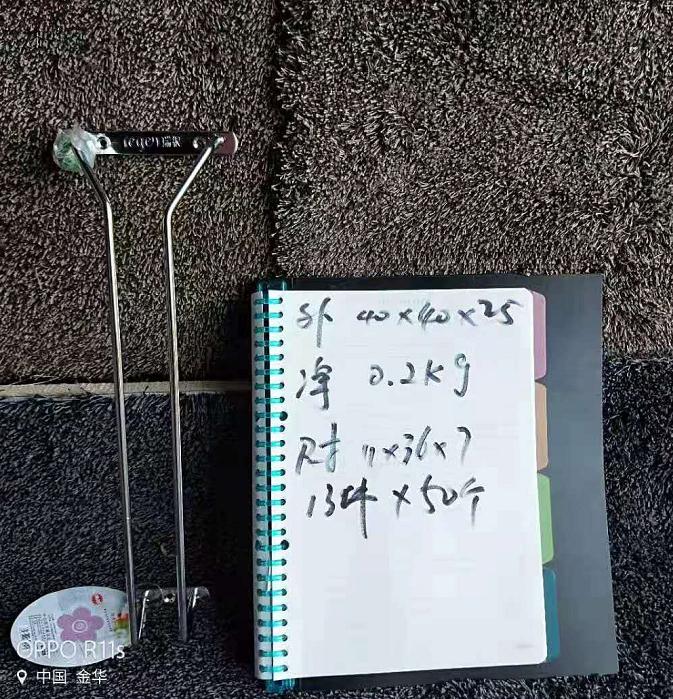 外 40×40×25
净 0.2Kg
尺寸 11×36×7
13件×50个
OPPO R11s
中国 金华